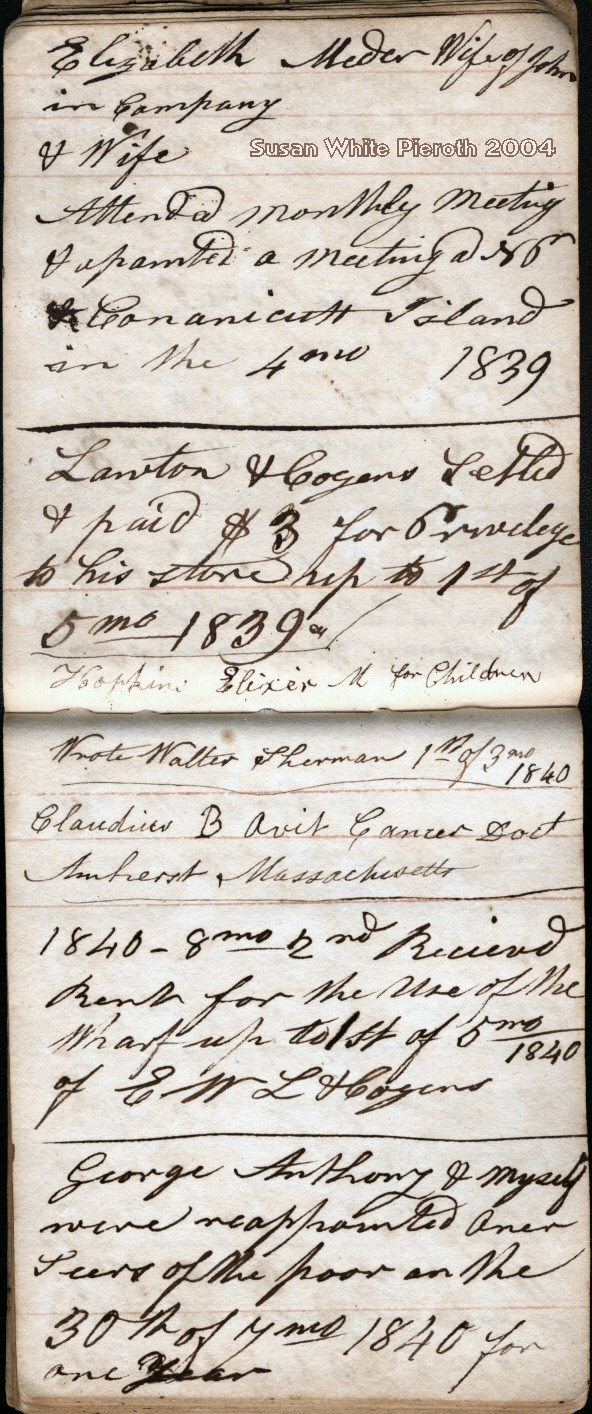 Elizabeth Meder Wife of John
in Company
& Wife
Susan White Pieroth 2004
Attend a monthly Meeting
& apainted a meeting a
Conanicutt Island
in the 4 mo 1839
Lawton & Cogens Setled
& paid $3 for Privelege
to his store up to 1st of
5 mo 1839
Hopkins Elixer M for Children
Wrote Walter Sherman 1st of 3 mo 1840
Claudius B Cancer Doct
Amherst Massachusetts
1840 - 8 mo 2nd Recievd
Rent for the Use of the
Wharf up to 1st of 5 mo 1840
of E W L & Cogens
George Anthony & myself
were reappointed Over
Seers of the poor on the
30th of 7 mo 1840 for
one Year